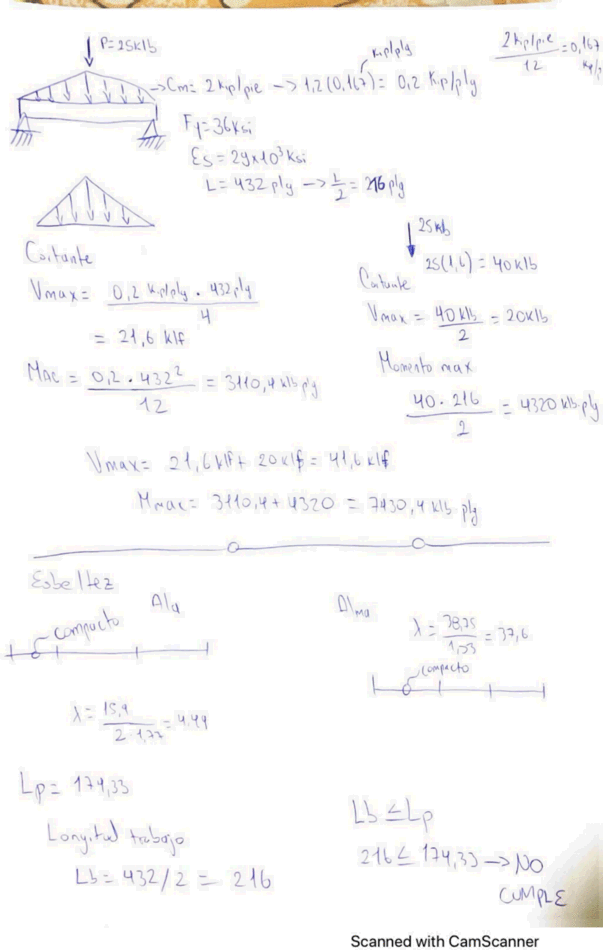 P=25klb
Cm= 2 kip/pie -> 1,2(0,167) = 0,2 Kip/ply
kip/ply
2 kip/pie / 12 = 0,167
Fy=36Ksi
Es = 29x10³ Ksi
L = 432 ply -> L/2 = 216 ply
Cortante
Vmax = 0,2 kip/ply · 432 ply / 4
= 21,6 klf
Mac = 0,2 · 432² / 12 = 3110,4 klb ply
25klb
25(1,6) = 40 klb
Cortante
Vmax = 40klb / 2 = 20klb
Momento max
40 · 216 / 2 = 4320 klb ply
Vmax= 21,6 klf + 20 klf = 41,6 klf
Mmac= 3110,4 + 4320 = 7430,4 klb ply
Esbeltez
Ala
compacto
λ = 15,9 / 2 · 1,77 = 4.49
Alma
λ = 38,75 / 1,03 = 37,6
compacto
Lp = 174,33
Longitud trabajo
Lb = 432/2 = 216
Lb ≤ Lp
216 ≤ 174,33 -> NO
CUMPLE
Scanned with CamScanner